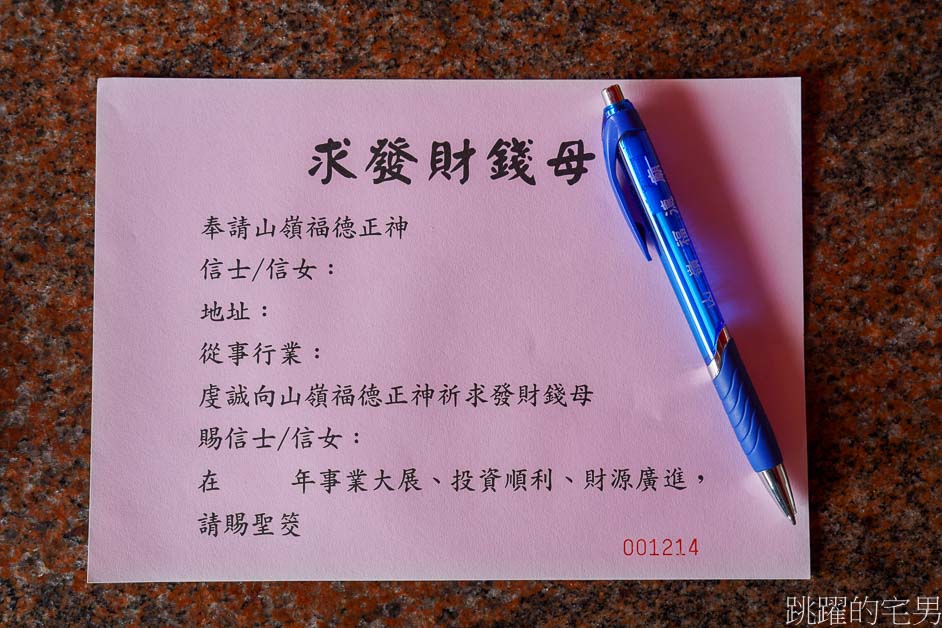 求發財錢母
奉請山嶺福德正神
信士/信女：
地址：
從事行業：
虔誠向山嶺福德正神祈求發財錢母
賜信士/信女：
在 年事業大展、投資順利、財源廣進，
請賜聖筊
001214
山嶺福德廟
跳躍的宅男